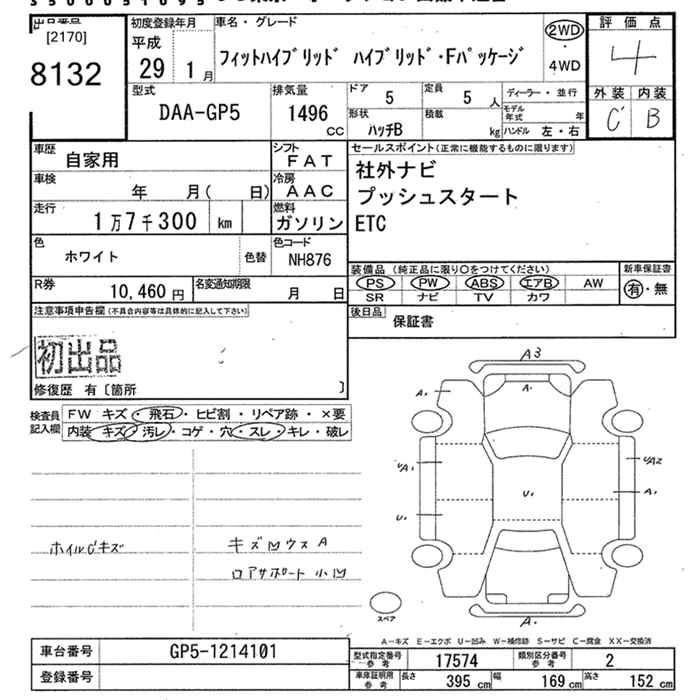 出品番号
[2170]
8132
初度登録年月
平成
29 1月
車名・グレード
フィットハイブリッド ハイブリッド・Fパッケージ
2WD
・
4WD
評価点
4
外装 内装
C B
型式
DAA-GP5
排気量
1496
CC
ドア
5
定員
5 人
形状
ハッチB
積載
kg
ディーラー・並行
モデル年式 年
ハンドル 左・右
車歴
自家用
シフト
FAT
車検
年 月( 日)
冷房
AAC
走行
1万7千300 km
燃料
ガソリン
色
ホワイト
色替
色コード
NH876
R券
10,460 円
名変通知期限
月 日
セールスポイント(正常に機能するものに限ります)
社外ナビ
プッシュスタート
ETC
装備品 (純正品に限り〇をつけてください)
PS PW ABS エアB AW
SR ナビ TV カワ
新車保証書
有・無
後日品
保証書
注意事項申告欄(不具合内容等は具体的に記入して下さい)
初出品
修復歴 有〔箇所 〕
検査員記入欄
FW キズ・飛石・ヒビ割・リペア跡・×要
内装 キズ・汚レ・コゲ・穴・スレ・キレ・破レ
ホイルCキズ
キズ凹ウスA
ロアサポート小凹
A3
A₁
A₁
UA₁
UA2
A₁
U₁
U₁
A₁
スペア
A―キズ E―エクボ U―凹み W―補修跡 S―サビ C―腐食 XX―交換済
車台番号
GP5-1214101
登録番号
型式指定番号 参考
17574
類別区分番号 参考
2
車庫証明用 参考
長さ 395 cm 幅 169 cm 高さ 152 cm